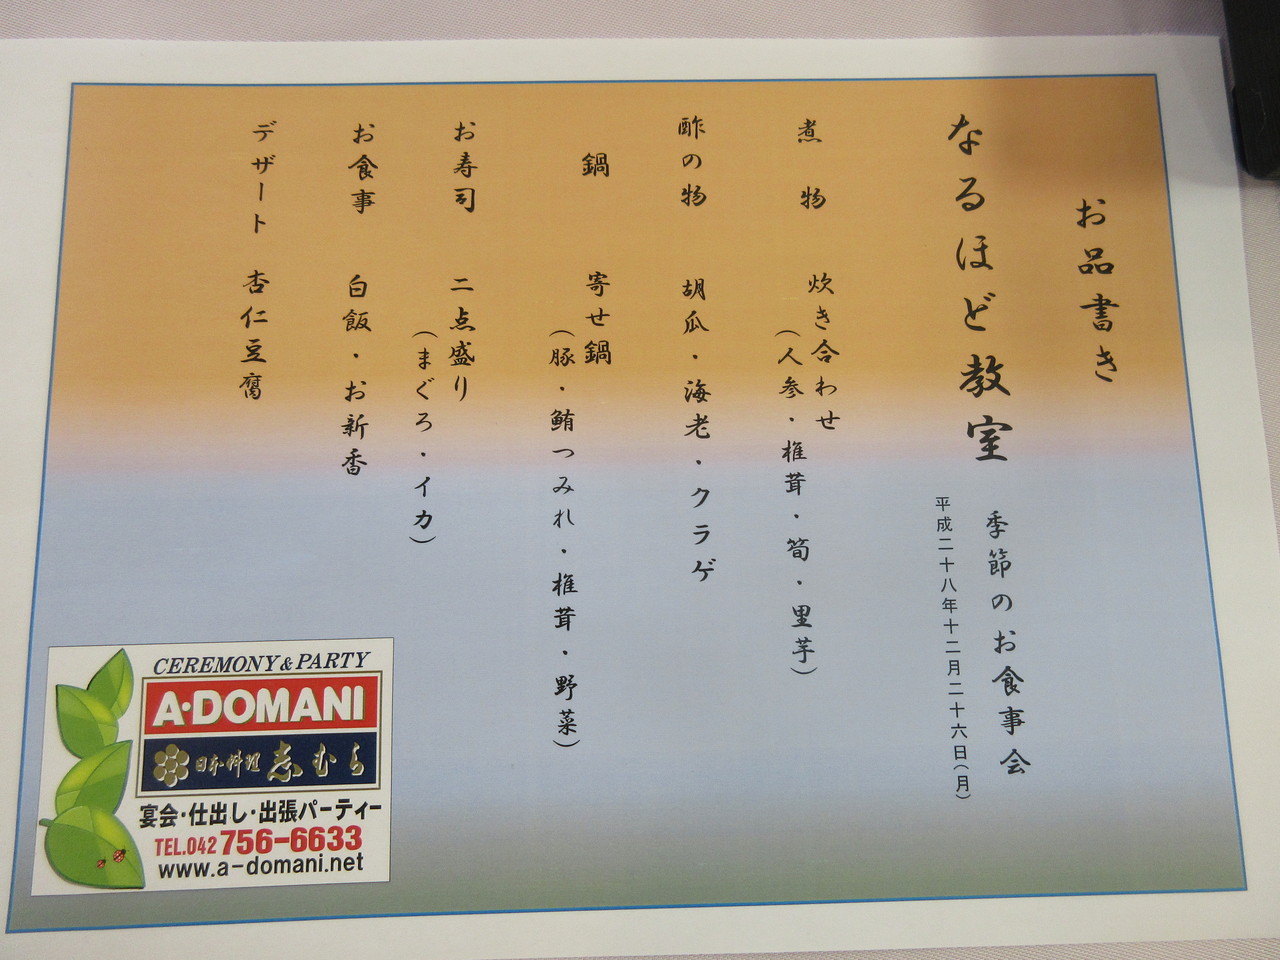 お品書き
なるほど教室
季節のお食事会
平成二十八年十二月二十六日(月)
煮物 炊き合わせ
(人参・椎茸・筍・里芋)
酢の物 胡瓜・海老・クラゲ
鍋 寄せ鍋
(豚・鮪つみれ・椎茸・野菜)
お寿司 二点盛り
(まぐろ・イカ)
お食事 白飯・お新香
デザート 杏仁豆腐
CEREMONY & PARTY
A・DOMANI
日本料理 志むら
宴会・仕出し・出張パーティー
TEL.042 756-6633
www.a-domani.net